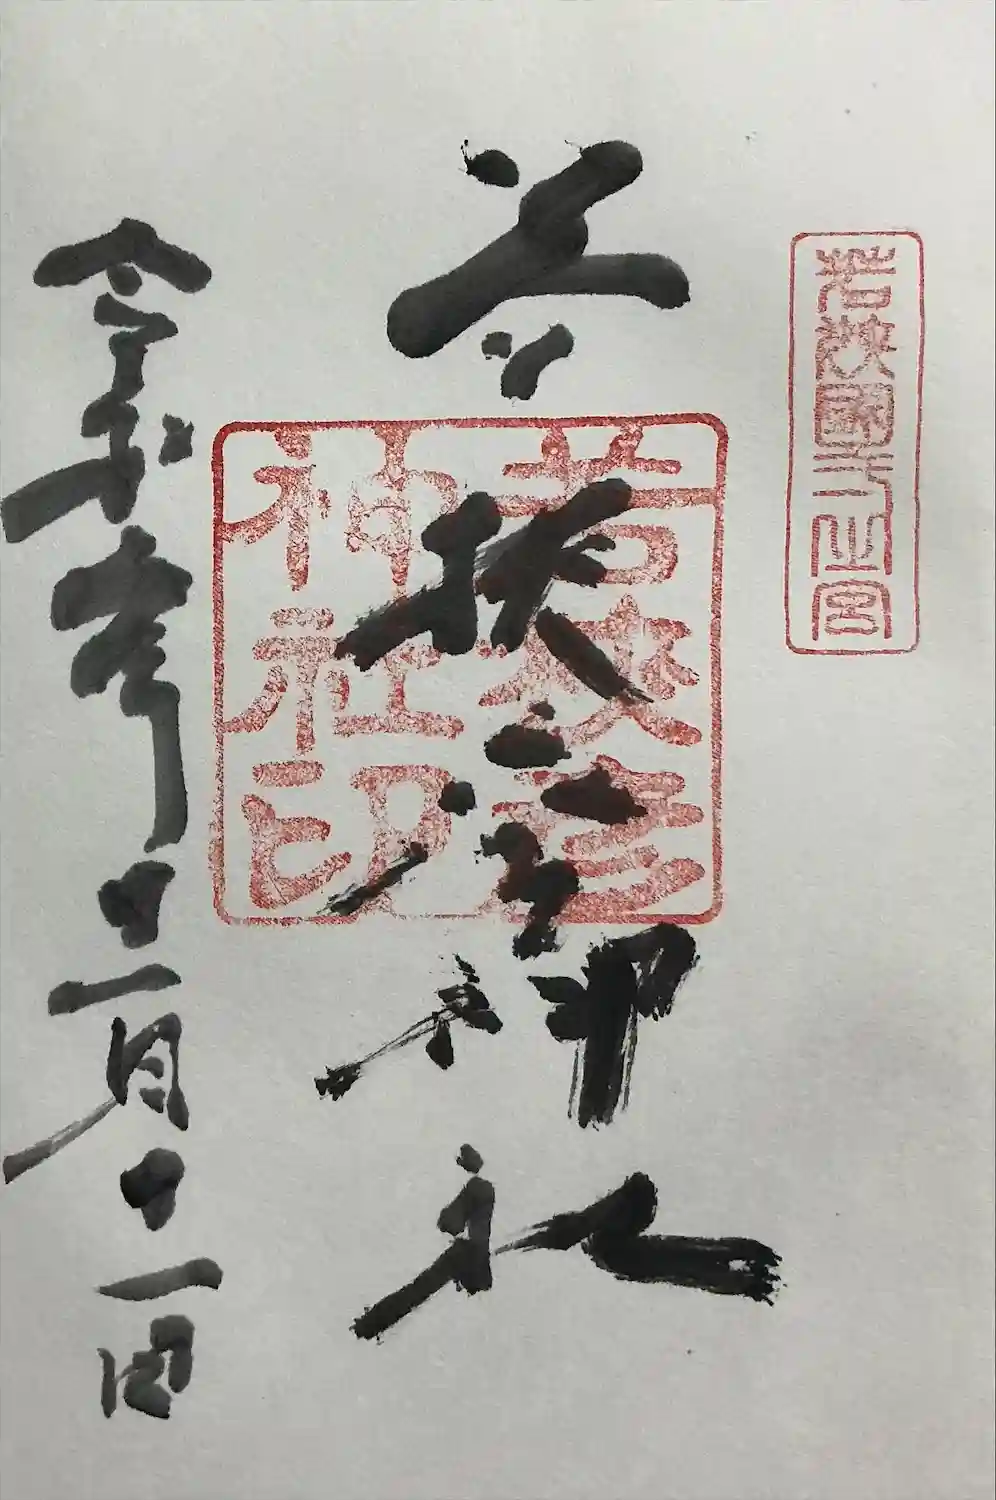 若狭國一之宮
若狭彦神社
若狭彦神社印
令和年十一月十一日